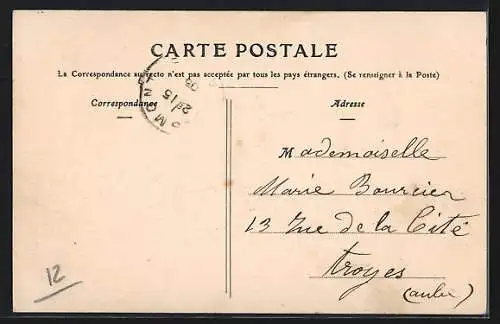 CARTE POSTALE
La Correspondance au recto n'est pas acceptée par tous les pays étrangers. (Se renseigner à la Poste)
Correspondance
Adresse
Mademoiselle
Marie Bourcier
13 Rue de la Cité
Troyes
(aube)
12